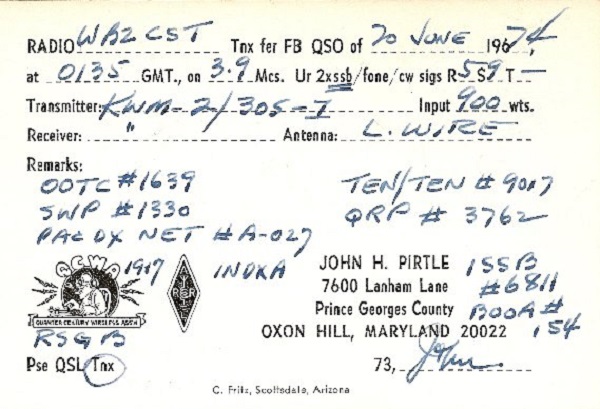 RADIO WB2CST Tnx fer FB QSO of 20 JUNE 1967 4,
at 0135 GMT., on 3.9 Mcs. Ur 2xssb/fone/cw sigs R 5 S 9 T -
Transmitter: KWM-2/30S-1 Input 900 wts.
Receiver: " Antenna: L. WIRE
Remarks:
OOTC #1639 TEN/TEN # 9017
SWP #1330 QRP # 3762
PAC DX NET #A-027
QCWA 1917 ARRL INDXA JOHN H. PIRTLE ISSB
7600 Lanham Lane #6811
QUARTER CENTURY WIRELESS ASS'N Prince Georges County BOOA #
RSGB OXON HILL, MARYLAND 20022 154
Pse QSL Tnx 73, John
C. Fritz, Scottsdale, Arizona